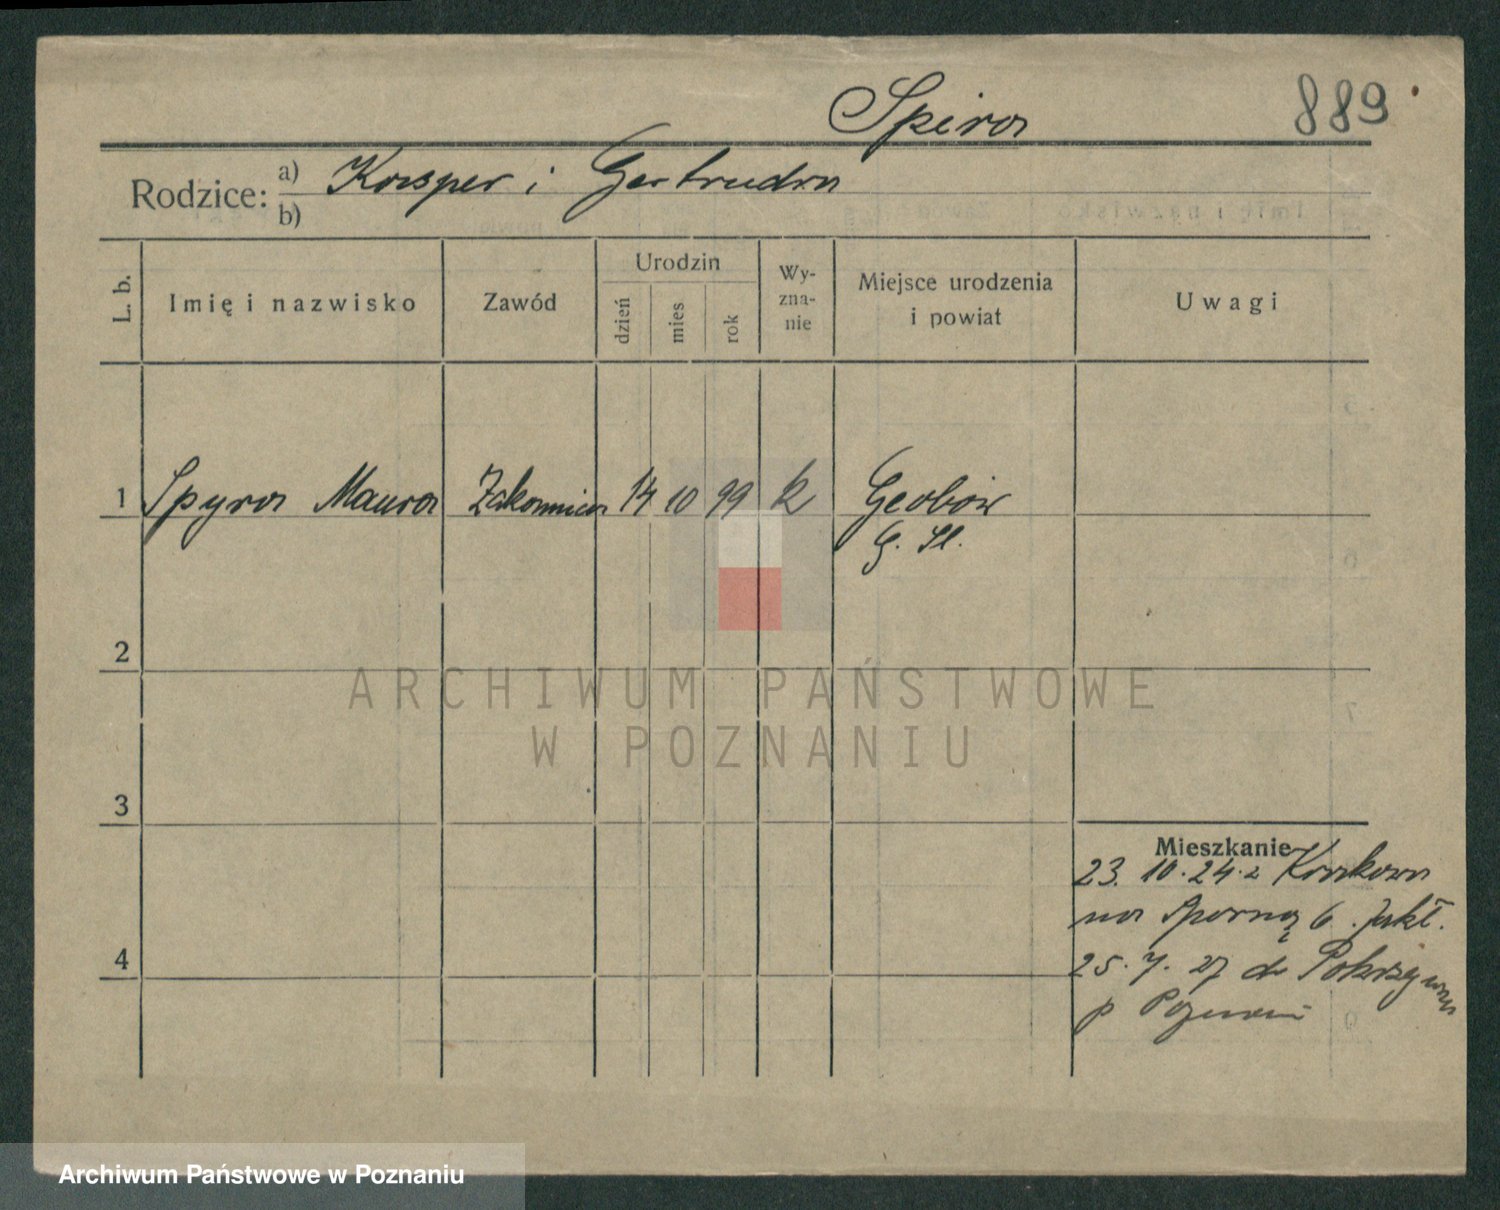 Spira
889
Rodzice: a) Kasper i Gertruda
b)
L. b.
Imię i nazwisko
Zawód
Urodzin
dzień
mies
rok
Wy-
zna-
nie
Miejsce urodzenia
i powiat
Uwagi
1 Spyra Maura Zakonnica 14 10 99 k
G. Śl.
2
3
4
Mieszkanie
23. 10. 24. z Krakowa
na Sporną 6
25. 7. 27 do
p Poznań
ARCHIWUM PAŃSTWOWE
W POZNANIU
Archiwum Państwowe w Poznaniu